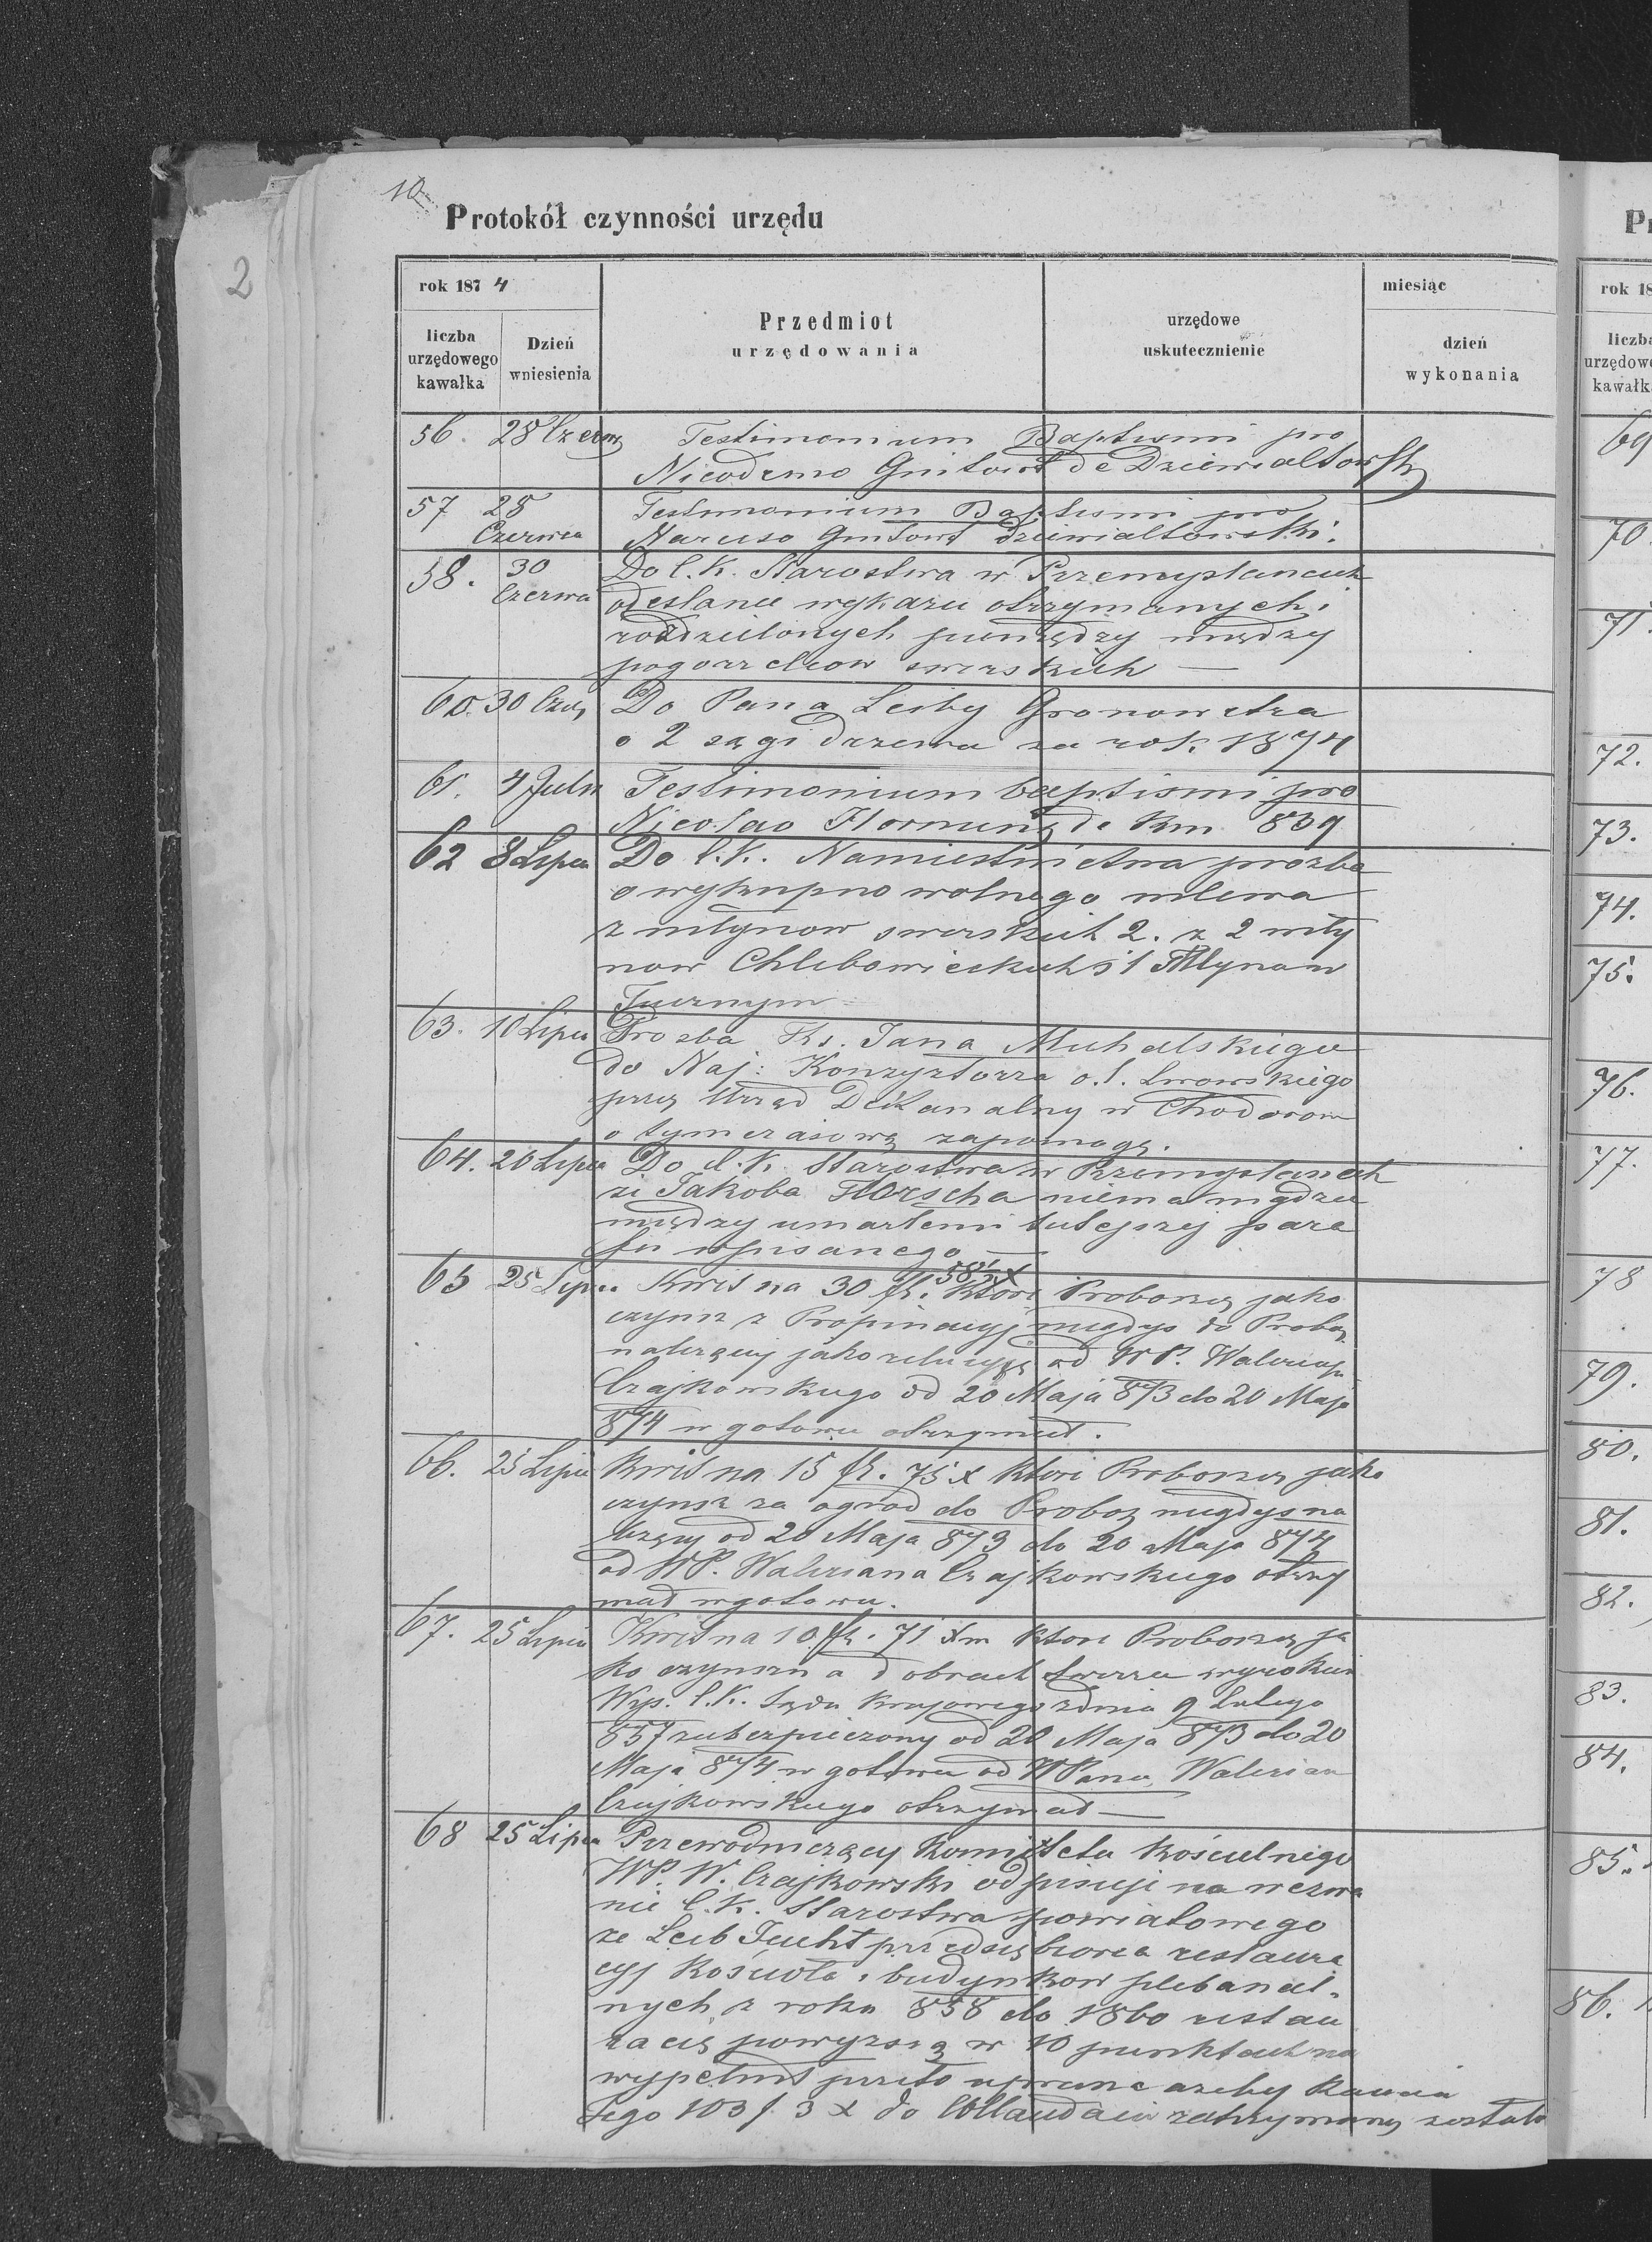 10
Protokół czynności urzędu
2
rok 1874
miesiąc
liczba urzędowego kawałka
Dzień wniesienia
Przedmiot urzędowania
urzędowe uskutecznienie
dzień wykonania
56. 28 Czerw Testimonium Baptismi pro
Nicodemo Gintowt de Dziewialtowski
57 28 Czerwca Testimonium Baptismi pro
Narciso Gintowt Dziewialtowski.
58. 30 Czerwca Do C. K. Starostwa w Przemyslanach
odeslanie wykazu otrzymanych i
rozdzielonych pieniędzy między
pogorzelcow swirskich —
60. 30 Czer Do Pana Leiby
o 2 sągi drzewa za rok 1874
61. 4 Julii Testimonium baptismi pro
Nicolao Hornung de 839
62 8 Lipca Do C. K. Namiestnictwa prozba
o wykupno wolnego mlewa
z mlynow swirskich 2. z 2 mły
now Chlebowieckich i 1 Mlynow
63. 10 Lipca Prozba Ks. Jana Michalskiego
do Naj: Konzystorza o. l. Lwowskiego
przez Urząd Dekanalny w Chodorow
o tymczasową zapomogę.
64. 20 Lipca Do C. K. Starostwa w Przemyslanach
ze Jakoba niema nigdzie
między umarlemi tutejszej para
fii wpisanego —
65 25 Lipca Kwit na 30 fl. 58½ x ktore Proboszcz jako
czynsz z Propinacyj niegdys do Probos
należącej jako od WP. Waleriana
Czajkowskiego od 20 Maja 873 do 20 Maja
874 w gotowce otrzymał.
66. 25 Lipca Kwit na 15 fl. 75 x ktore Proboszcz jako
czynsz za ogrod do Probos niegdys na
lezący od 20 Maja 873 do 20 Maja 874
od WP. Waleriana Czajkowskiego otrzy
mał w gotowce.
67. 25 Lipca Kwit na 10 fl. 71 ktore Proboszcz ja
ko czynsz na dobrach
C. K. Sądu Krajowego z dnia 9 Lutego
857 zabezpieczony od 20 Maja 873 do 20
Maja 874 w gotowce od WPana Walerian
Czajkowskiego otrzymał —
68 25 Lipca Przewodniczący Komitetu kościelnego
WP. W. Czajkowski odpisuje na wezwa
nie C. K. Starostwa powiatowego
ze Leib przedsiębiorca restaura
cyj kościoła i budynkow plebanal-
nych z roku 858 do 1860 restau
racię powyzszą w 10 punktach nie
wypełnił przeto uprasza azeby kaucia
Jego 103 f 3 x do zatrzymaną została
Pr
rok 18
liczba
urzędowe
kawałk
69
70.
71.
72.
73.
74.
75.
76.
77.
78
79.
80.
81.
82.
83.
84.
85.
86.